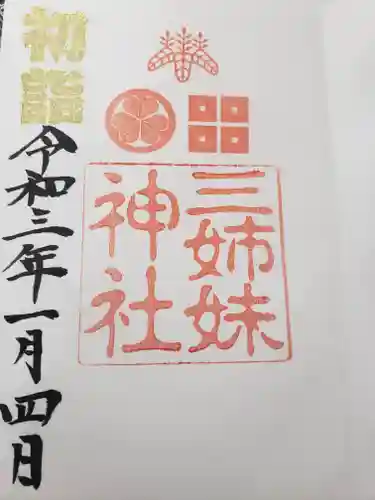 初詣
三姉妹
神社
令和三年一月四日